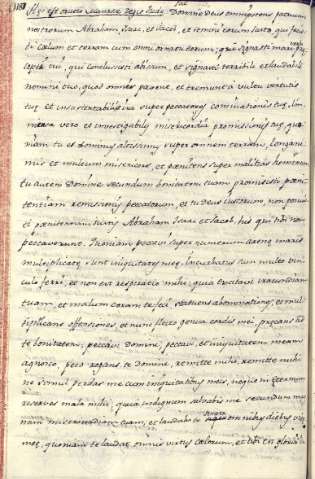 Hęc est oratio Manasse Regis Iudę. Domine Deus omnipotens patrum
nostrorum Abraham, Isaac, et Iacob, et semini eorum iusto, qui feci-
sti cœlum et terram cum omni ornatu eorum, qui signasti mare
tui, qui conclusisti abissum, et signasti terribili et laudabili
nomine tuo, quod omnes pavent, et tremunt a vultu virtutis
tuę et insustentabilis ira super peccatores comminationis tuę, Im-
mensa vero et investigabilis misericordia promissionis tuę, quo-
niam tu es Dominus altissimus super omnem terram, longani-
mis et multum misericors, et pœnitens super malitias hominum
tu autem Domine secundum bonitatem tuam promisisti pœni-
tentiam remissionis peccatorum, et tu Deus iustorum non posuis-
ti pœnitentiam iustis Abraham Isaac et Iacob, his qui tibi non
peccaverunt. Quoniam peccavi super numerum arenę maris
multiplicatę sunt iniquitates meę, incurvatus sum multo vin-
culo ferri, et non est respiratio mihi, quia excitavi iracundiam
tuam, et malum coram te feci, statuens abominationes, et mul-
tiplicans offensiones, et nunc flecto genua cordis mei, precans
te bonitatem, peccavi Domine, peccavi, et iniquitatem meam
agnosco, peto rogans te Domine, remitte mihi, remitte mihi
ne simul perdas me cum iniquitatibus meis, neque in ęternum
reserves mala mihi, quia indignum salvabis me secundum mag-
nam misericordiam tuam, et laudabo te semper omnibus diebus vitę
meę, quoniam te laudat omnis virtus cœlorum, et tibi est gloria in